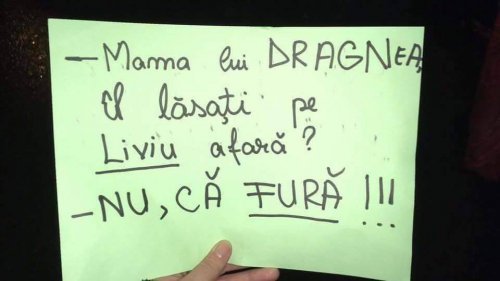 — Mama lui DRAGNEA,
Îl lăsați pe
LIVIU afară?
- NU, CĂ FURĂ!!!